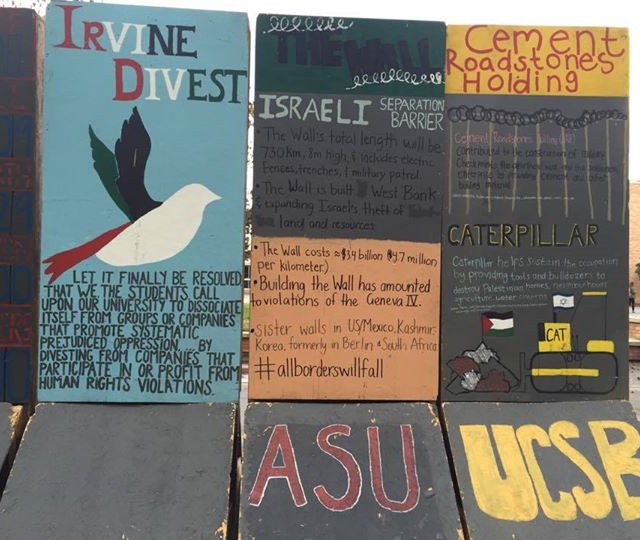 IRVINE
DIVEST
LET IT FINALLY BE RESOLVED
THAT WE THE STUDENTS CALL
UPON OUR UNIVERSITY TO DISSOCIATE
ITSELF FROM GROUPS OR COMPANIES
THAT PROMOTE SYSTEMATIC
PREJUDICED OPPRESSION, BY
DIVESTING FROM COMPANIES THAT
PARTICIPATE IN OR PROFIT FROM
HUMAN RIGHTS VIOLATIONS.
THE WALL
ISRAELI SEPARATION
BARRIER
• The Wall's total length will be
730km, 8m high, & includes electric
fences, trenches, & military patrol.
• The Wall is built West Bank
& expanding Israel's theft of
land and resources
• The Wall costs ≈$3.4 billion ($4.7 million
per kilometer.)
• Building the Wall has amounted
to violations of the Geneva IV.
sister walls in US/Mexico, Kashmir,
Korea, formerly in Berlin & South Africa
#allborderswillfall
ASU
Cement
Roadstones
Holding
Cement Roadstones Holding
contributed to the construction of
building material
CATERPILLAR
Caterpillar helps sustain the occupation
by providing tools and bulldozers to
destroy Palestinian homes, neighbourhoods
agriculture, water cisterns
CAT
UCSB